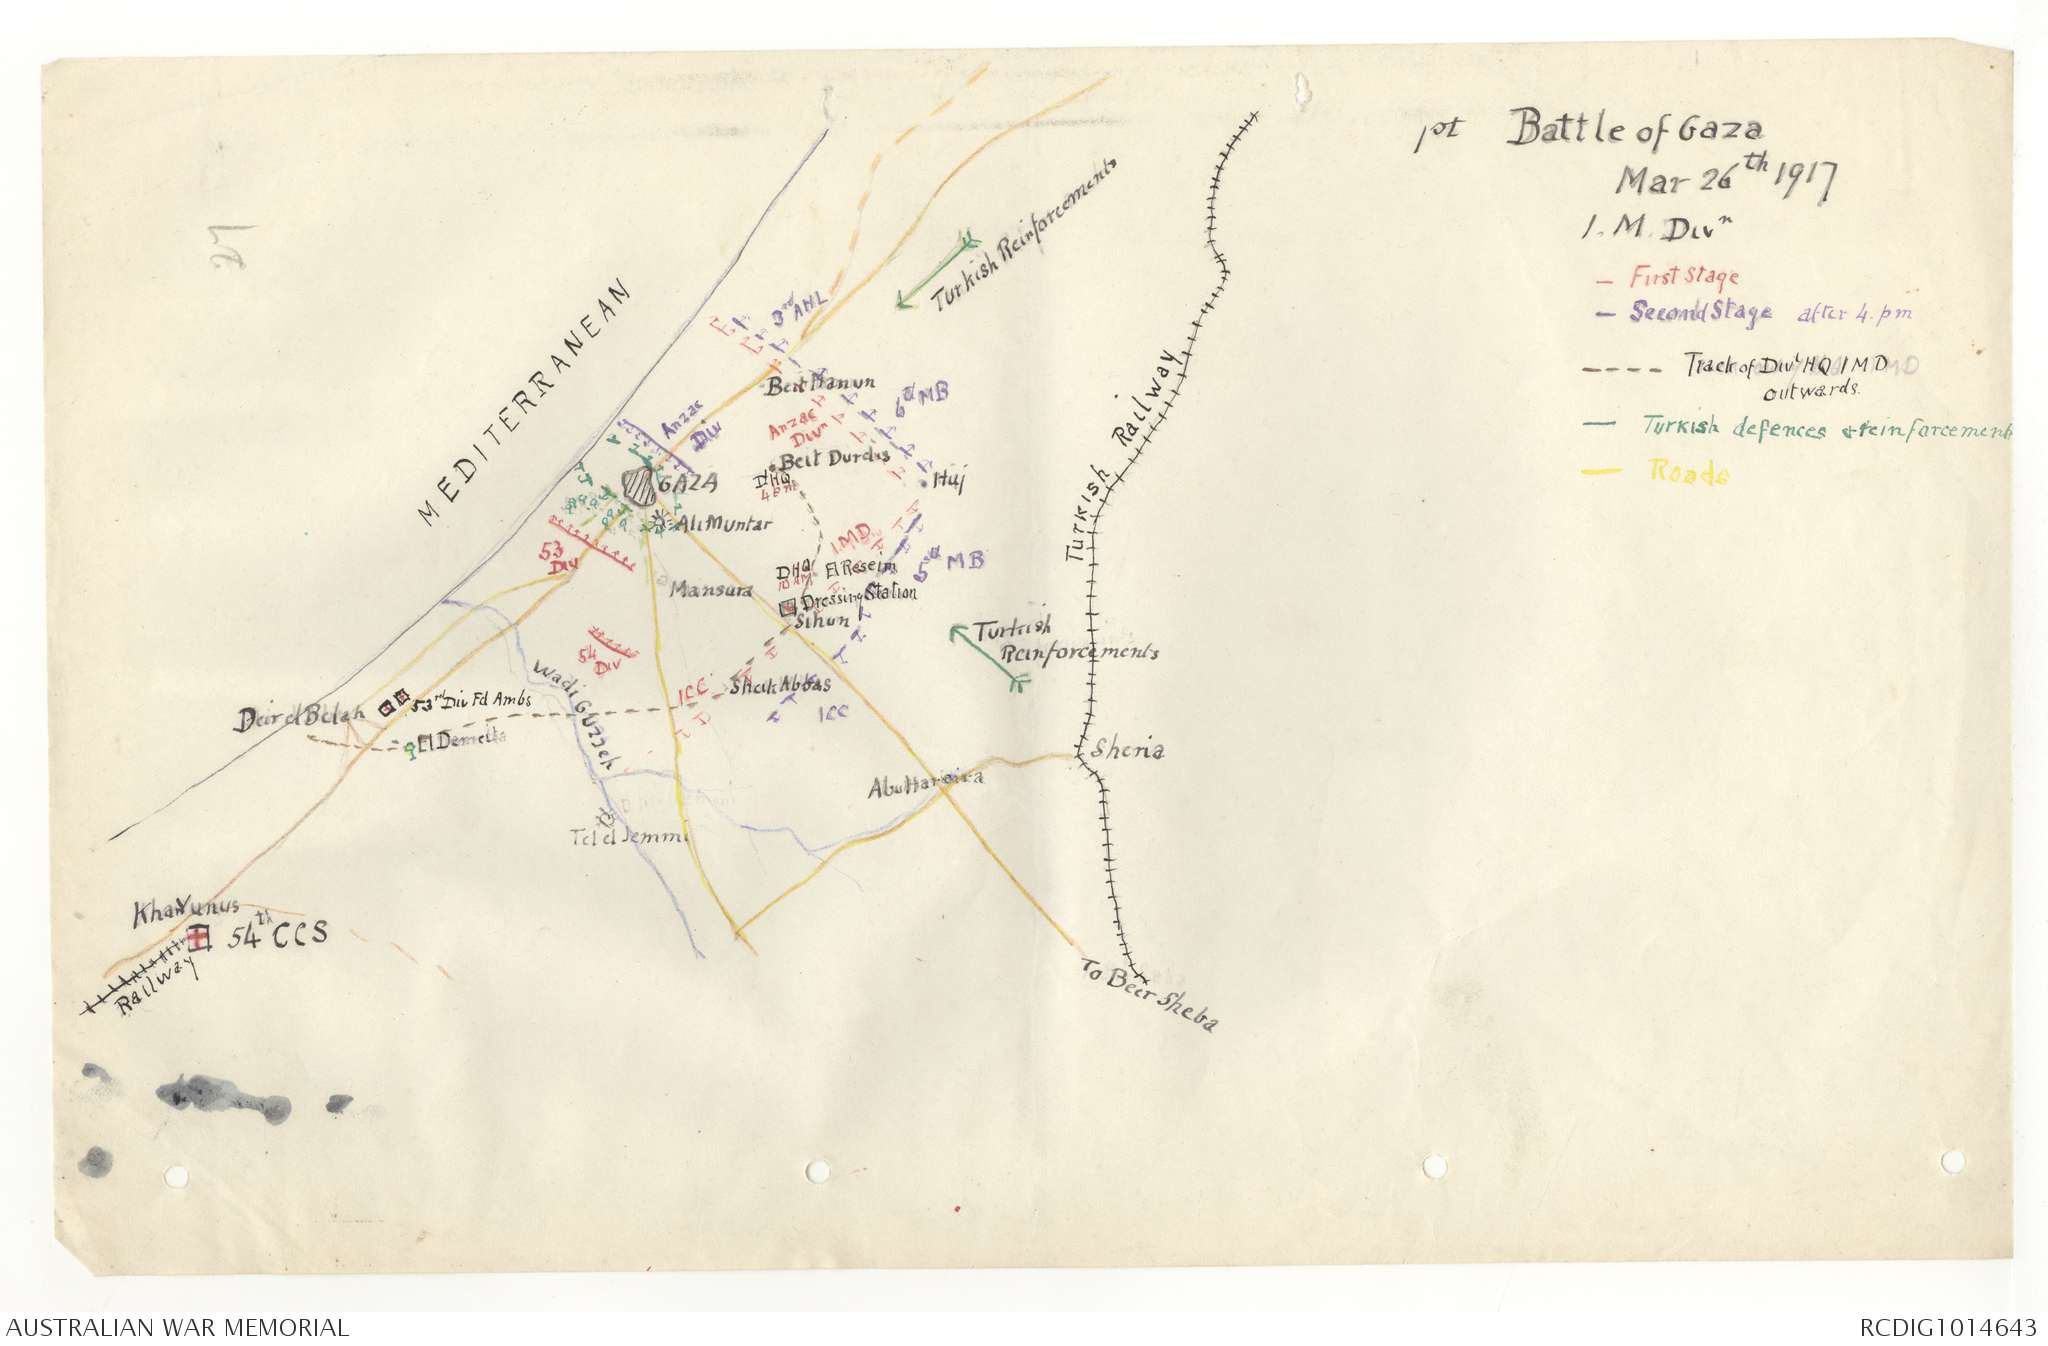 1st Battle of Gaza
Mar 26th 1917
1. M. Divn
First Stage
Second Stage after 4. pm
Track of Divl HQ 1 MD
outwards.
Turkish defences & reinforcements
Roads
27
MEDITERRANEAN
Turkish Reinforcements
3rd AHL
Beit Hanun
6th MB
Anzac
Div
Anzac
Divn
Beit Durdis
DHQ
4 pm
Huj
GAZA
Ali Muntar
53
Div
1.MD
5th MB
DHQ
El Reseim
Mansura
Dressing Station
Sihun
Turkish
Reinforcements
54
Div
Wadi Guzzeh
ICC
Sheik Abbas
ICC
Deir el Belah
53rd Div Fd Ambs
El Demeita
Turkish Railway
Sheria
Abu Hareira
Tel el Jemmi
Khan Yunus
54th CCS
Railway
To Beer Sheba
AUSTRALIAN WAR MEMORIAL
RCDIG1014643